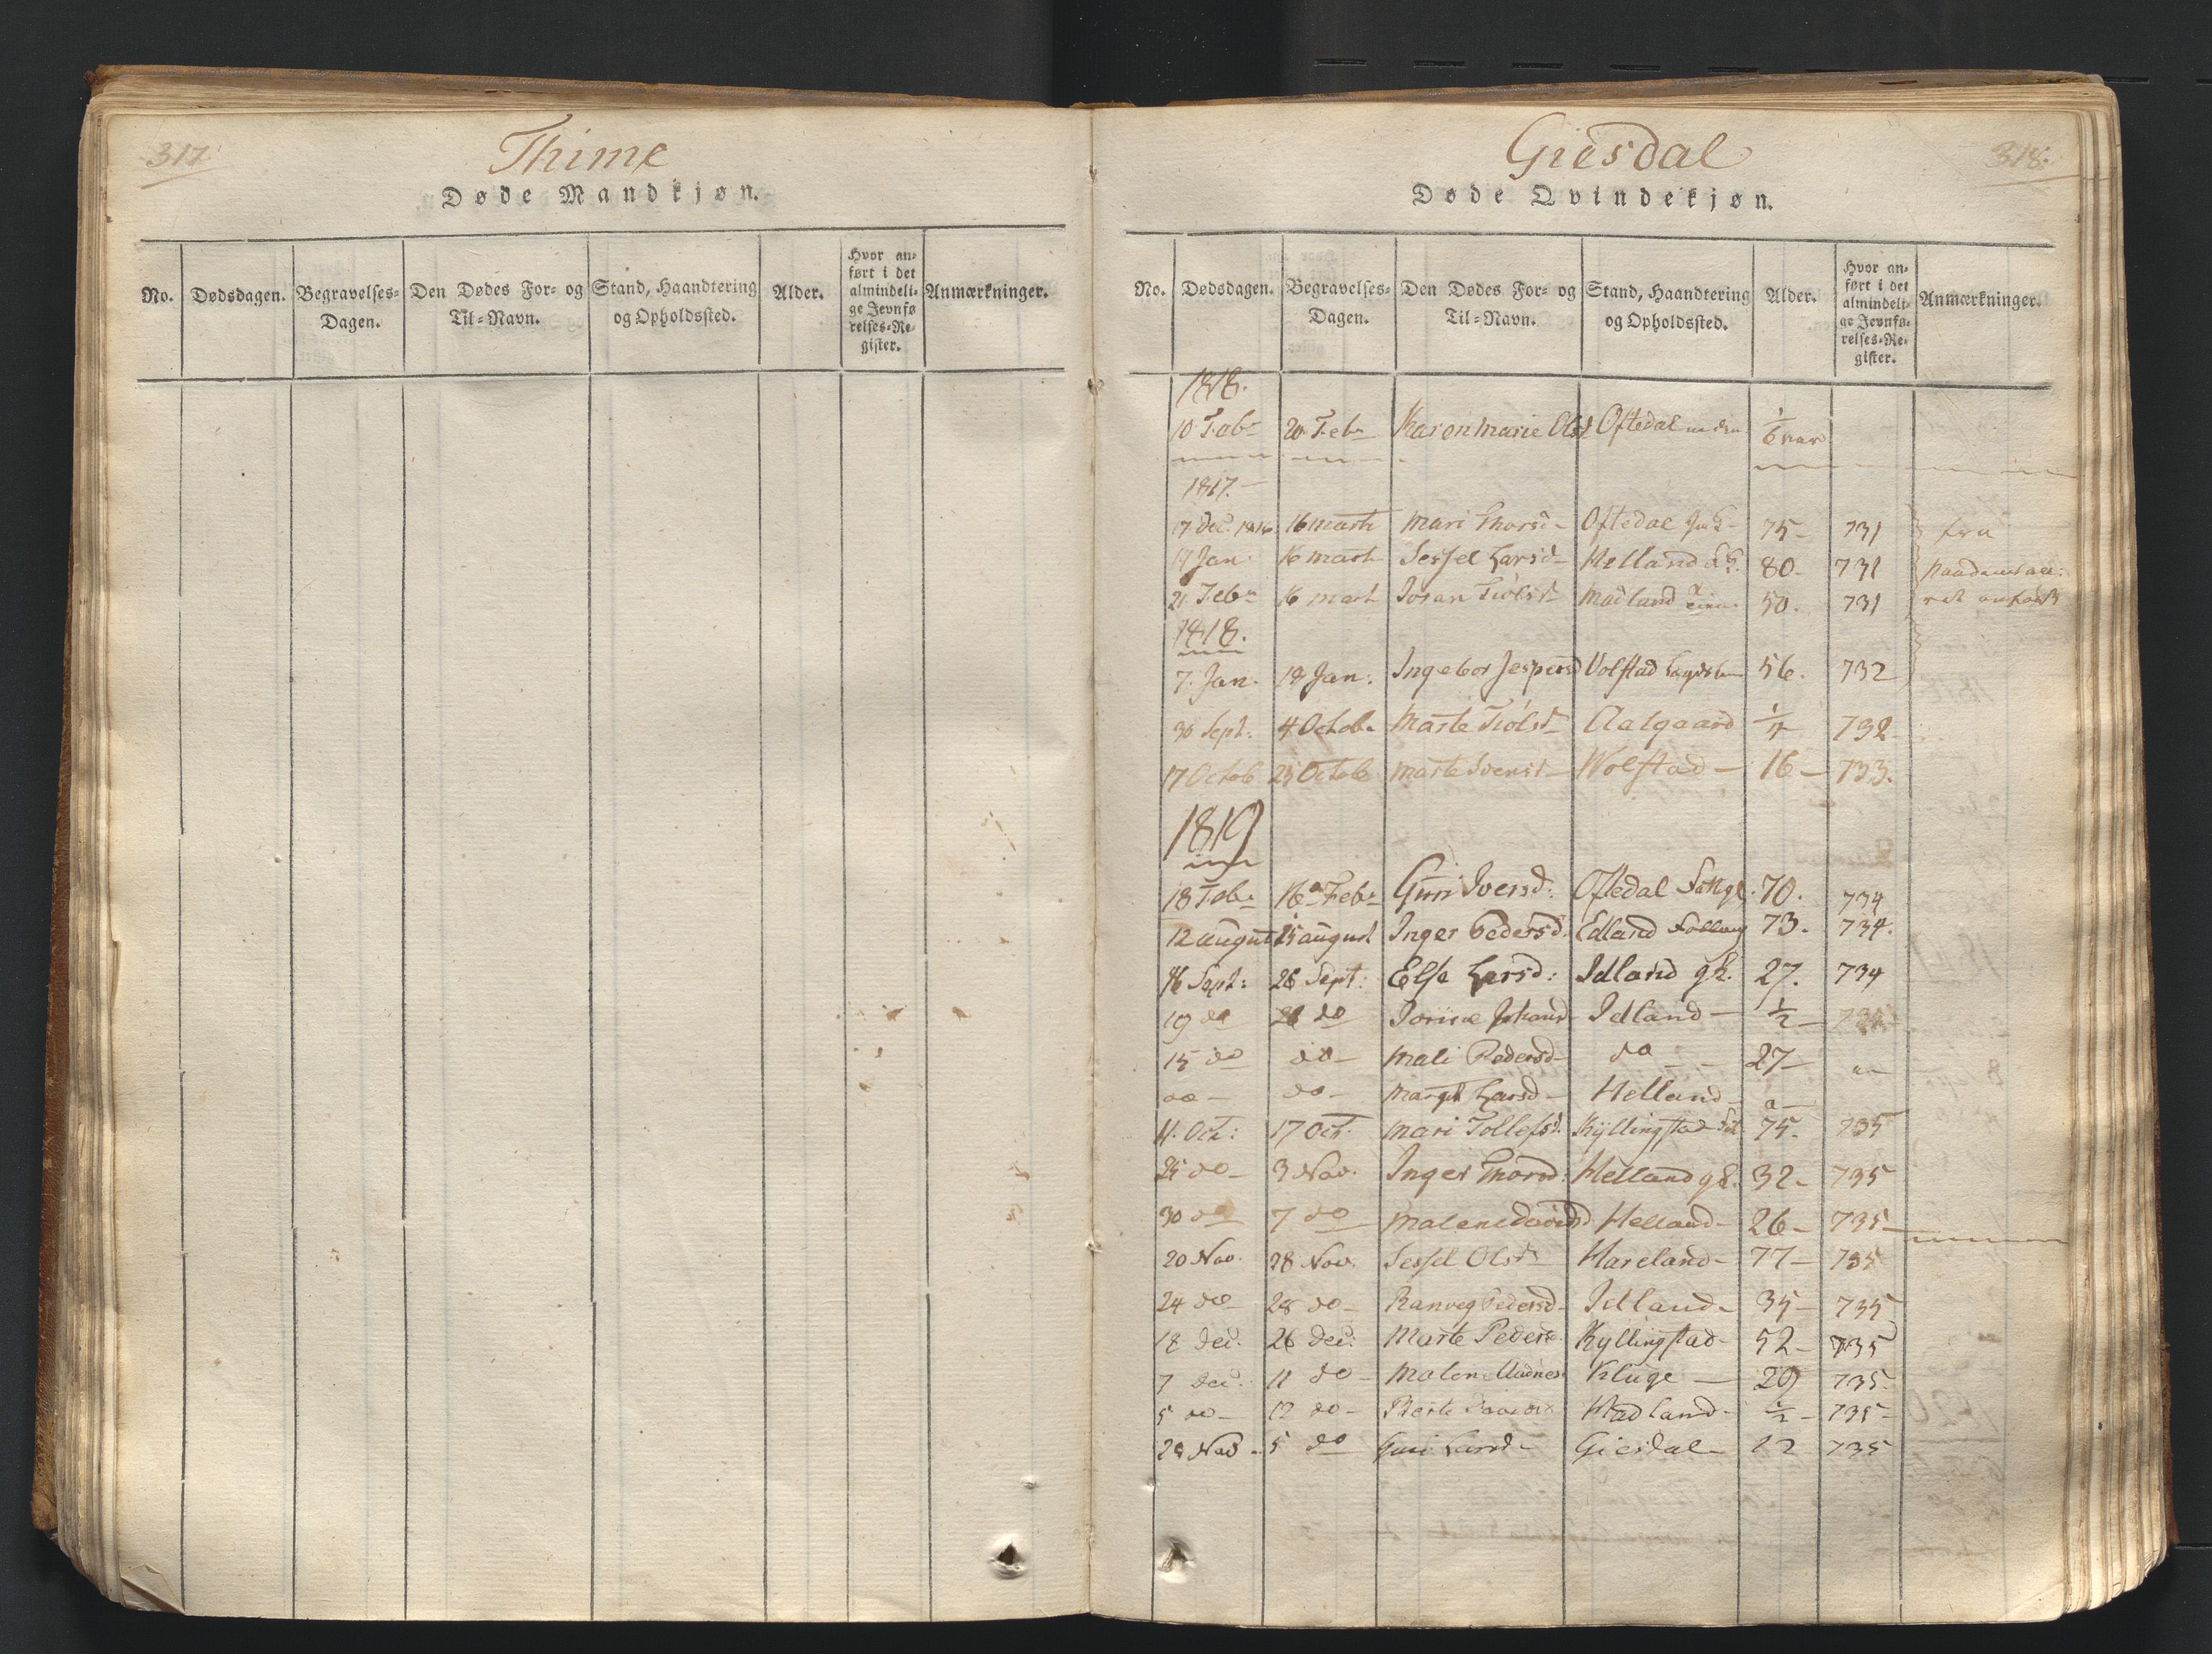 317
Thime
Døde Mandkjøn.
No. Dødsdagen. Begravelses-Dagen. Den Dødes For- og Til-Navn. Stand, Haandtering og Opholdssted. Alder. Hvor anført i det almindelige Jevnførelses-Register. Anmærkninger.
Giesdal
318.
Døde Qvindekjøn.
No. Dødsdagen. Begravelses-Dagen. Den Dødes For- og Til-Navn. Stand, Haandtering og Opholdssted. Alder. Hvor anført i det almindelige Jevnførelses-Register. Anmærkninger.
1818.
10 Febr 20 Febr Karen Marie Olsd Oftedal 1/6
1817.
17 Dec. 1816 16 Marti Mari Thorsd Oftedal 75 731
17 Jan 16 Marti Sessel Larsd Helland 80 731
21 Febr 16 Marti Josan Tiølsd Madland 50. 731
1818.
7. Jan. 18 Jan: Ingebor Jespersd Volstad 56. 732
30 Sept: 4 Octobr Marte Tiølsd Aalgaard 1/4 732
17 Octob 25 Octob Marte Svensd Wolstad 16 733.
1819
18 Febr 16 Febr Guri Iversd: Oftedal 70. 734
12 august 25 august Inger Pedersd. Edland 73. 734.
16 Sept: 26 Sept: Else Larsd: Idland gk. 27. 734
19 do 26 do Jorine Johansd Idland 1/2 734
15 do do Mali Pedersd do 27
do do Margt Larsd Helland
11. Oct: 17 Oct. Mari Tollefsd. Kyllingstad 75. 735
25 do 3 Nov. Inger Thorsd: Helland gk. 32 735
30 do 7 do Malene Davidsd Helland 26 735
20 Nov. 28 Nov. Sessel Olsd Hareland 77 735
24 do 28 do Ranveg Pedersd Idland 35 735
18 Dec. 26 Dec: Marte Peders. Kyllingstad 52 735
7 Dec. 11 do Malen Kluge 29 735.
5 do 12 do Berte Madland 1/2 735
28 Nov 5 do Guri Larsd Giesdal 12 735